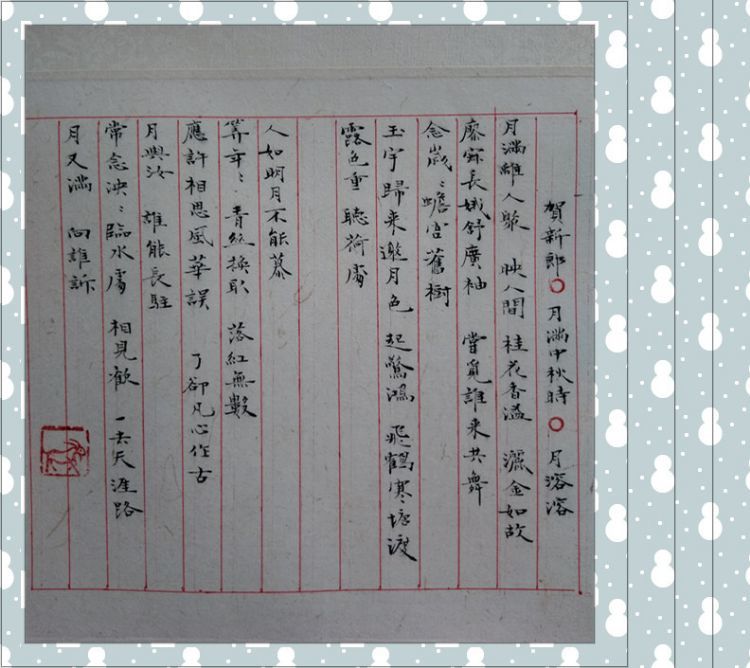 賀新郎○月滿中秋時○月溶溶
月滿離人聚 映人間 桂花香溢 灑金如故
廖寂長娥舒廣袖 嘗覓誰来共舞
念歲〻蟾宫舊樹
玉宇歸来邀月色 起驚鴻 飛鶴寒塘渡
露色重 聽荷處
人如明月不能慕
算年〻青絲換取 落紅無數
應許相思風華誤 了卻凡心作古
月與汝 誰能長駐
常念泱〻臨水處 相見歡 一去天涯路
月又滿 向誰訴